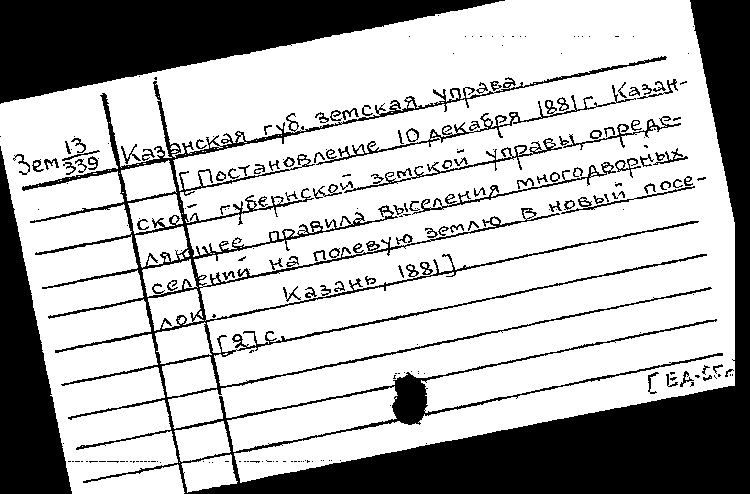 Зем 13/339
Казанская губ. земская управа.
[Постановление 10 декабря 1881 г. Казан-
ской губернской земской управы, опреде-
ляющее правила выселения многодворных
селений на полевую землю в новый посе-
лок. Казань, 1881].
[2] с.